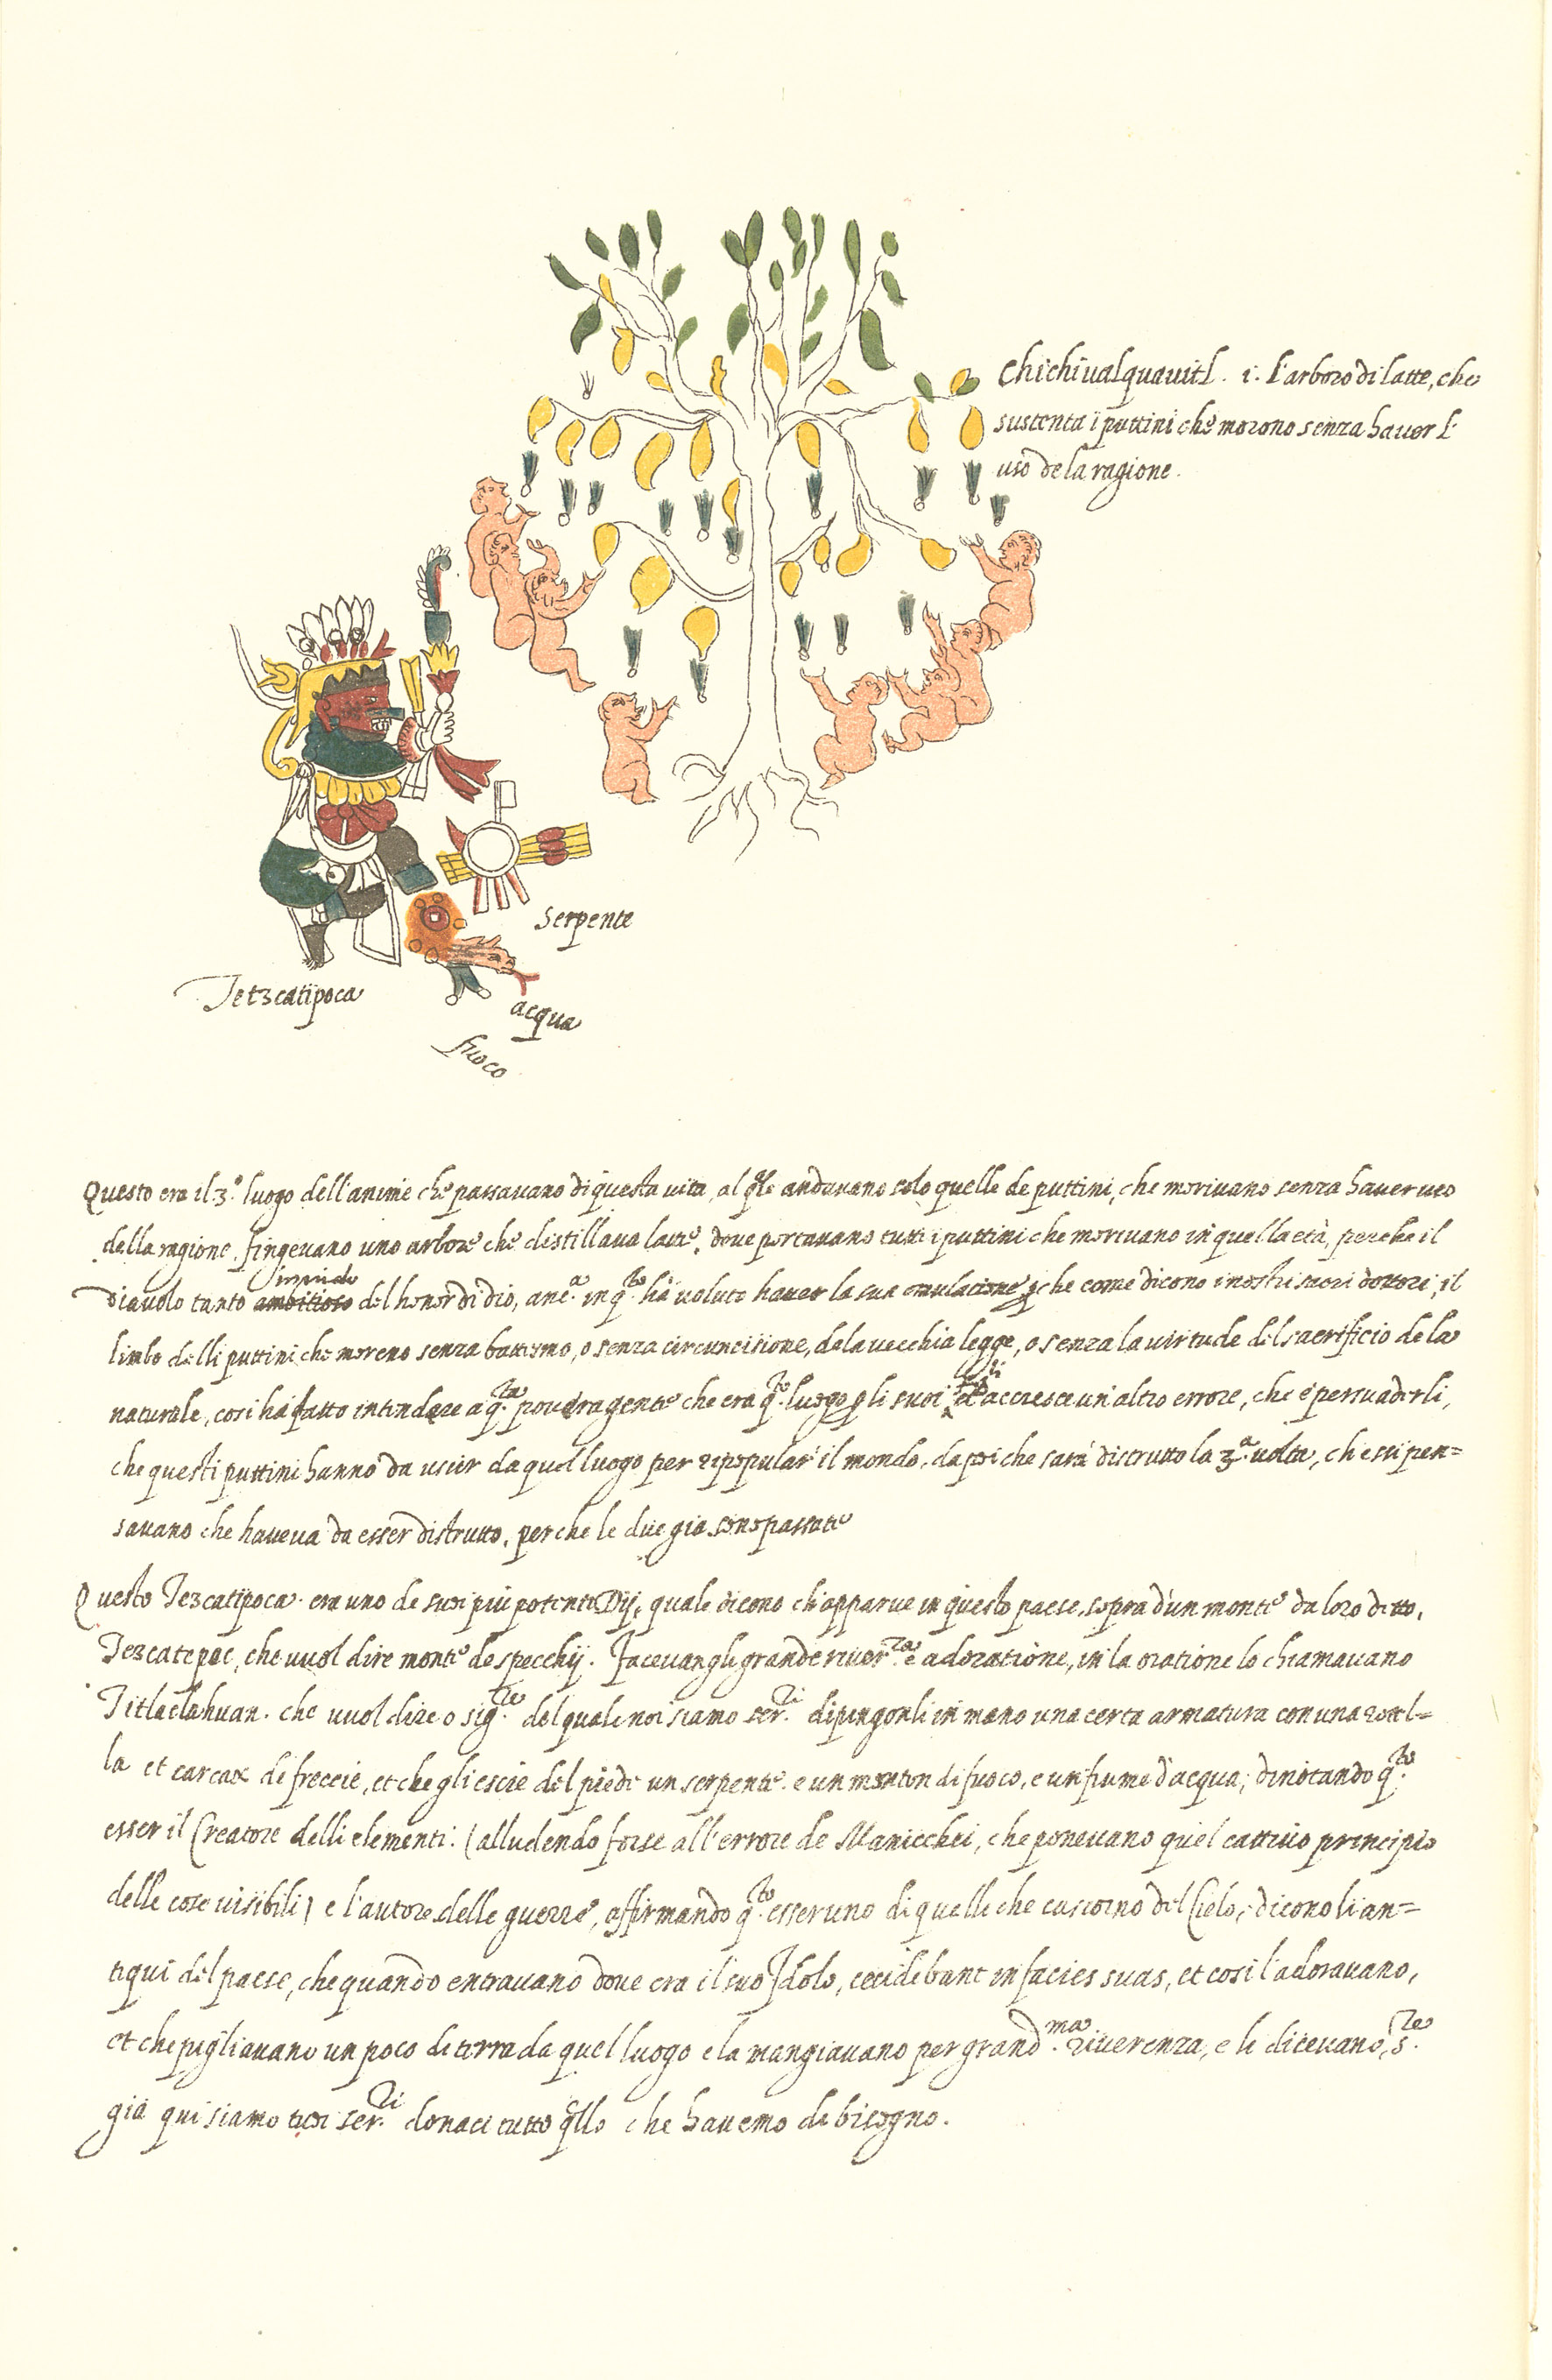 Chichiualquauitl. i. l'arboro di latte, che
sustenta i puttini chè morono senza haver l'
uso de la ragione.
Serpente
Tetzcatipoca
acqua
fuoco
Questo era il 3.º luogo dell'anime chè passavano di questa vita, al qle andavano solo quelle de puttini, che morivano senza haver uso
della ragione. fingevano uno arbore chè destillava latte, dove portavano tutti i puttini che morivano in quella età, perche il
Diavolo tanto ambitioso del honor di dio, anc.ª in q.to hà voluto haver la sua emulatione, che come dicono i nostri sacri dottori, il
limbo delli puttini che moreno senza battesmo, o senza circuncisione, de la vecchia legge, o senza la virtude del sacrificio de la
naturale, cosi hà fatto intendere a q.ta povera gente che era q.to luogo li suoi accresce un'altro errore, che è persuaderli,
che questi puttini hanno da uscir da quel luogo per repopular il mondo, da poi che sarà distrutto la 3.ª volta, ch'essi pen=
savano che haveva da esser distrutto, perche le due già sono passate
Questo Tezcatipoca. era uno de suoi più potenti Dij, quale dicono ch'apparve in questo paese, sopra d'un monte da loro detto,
Tezcatepec, che vuol dire monte de specchij. Facevangli grande river.za e adoratione, in la oratione lo chiamavano
Titlaclahuan. che vuol dire o sig.re del quale noi siamo ser.vi dipingonli in mano una certa armatura con una rotel=
la et carcax di freccie, et che gli escie del piede un serpente e un monton di fuoco, e un fiume d'acqua, dinotando q.to
esser il Creatore delli elementi: (alludendo forse all'errore de Manicchei, che ponevano quel cattivo principio
delle cose visibili) e l'autore delle guerre, affirmando q.to esser uno di quelli che cascorno del Cielo, dicono li an=
tiqui del paese, che quando entravano dove era il suo Idolo, cecidebant in facies suas, et cosi l'adoravano,
et che pigliavano un poco di terra da quel luogo e la mangiavano per grand.ma riverenza, e li dicevano, S.re
già qui siamo tuoi ser.vi donaci tutto qllo che havemo de bisogno.